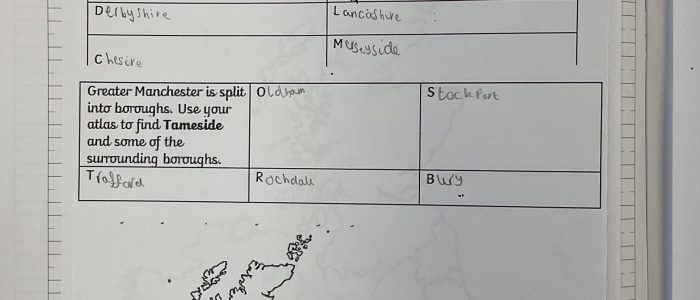 Derbyshire
Lancashire
Chesire
Merseyside
Greater Manchester is split
into boroughs. Use your
atlas to find Tameside
and some of the
surrounding boroughs.
Oldham
Stockport
Trafford
Rochdale
Bury